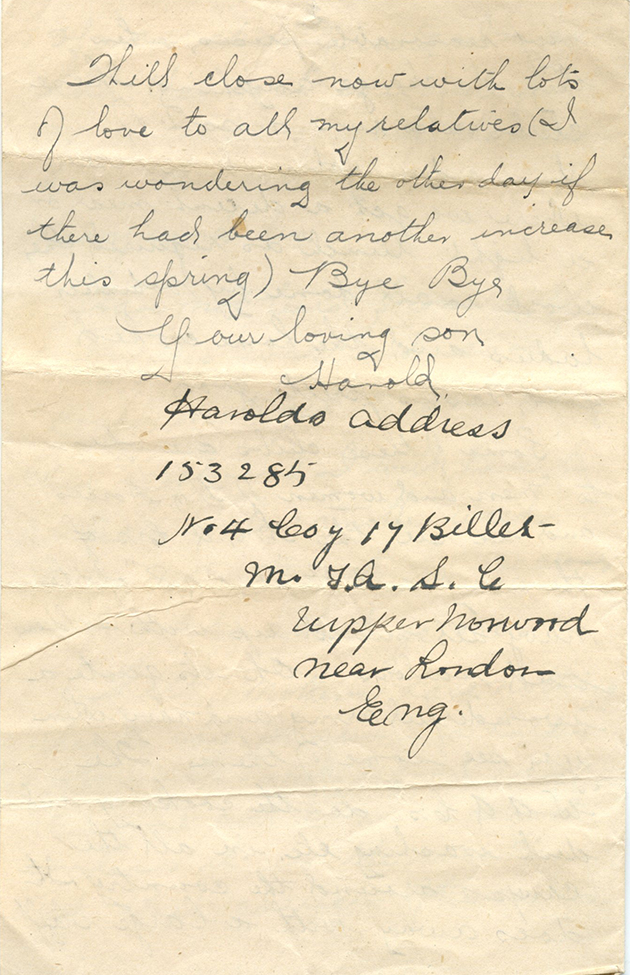 Will close now with lots
of love to all my relatives (I
was wondering the other day if
there had been another increase
this spring) Bye Bye
Your loving son
Harold
Harolds address
153285
No. 4 Coy 17 Billet
M. T. A. S. C
Upper Norwood
near London
Eng.